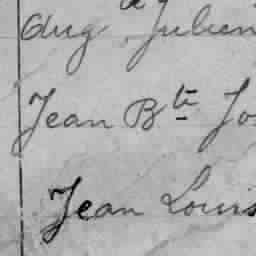 Aug Julien
Jean Bte Jos
Jean Louis